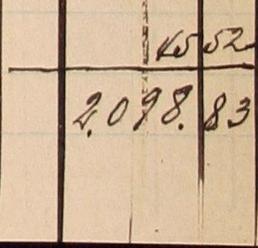 45 52
2.098.83